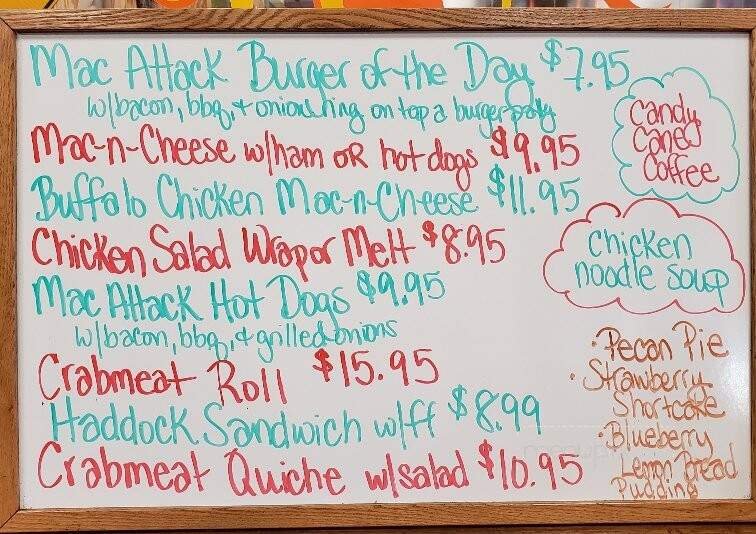 Mac Attack Burger of the Day $7.95
w/bacon, bbq, + onion ring on top a burger patty
Mac-n-Cheese w/ham OR hot dogs $9.95
Buffalo Chicken Mac-n-Cheese $11.95
Chicken Salad Wrap or Melt $8.95
Mac Attack Hot Dogs $9.95
w/bacon, bbq, & grilled onions
Crabmeat Roll $15.95
Haddock Sandwich w/ff $8.99
Crabmeat Quiche w/salad $10.95
Candy
Cane
Coffee
Chicken
noodle soup
• Pecan Pie
• Strawberry
Shortcake
• Blueberry
Lemon Bread
Pudding